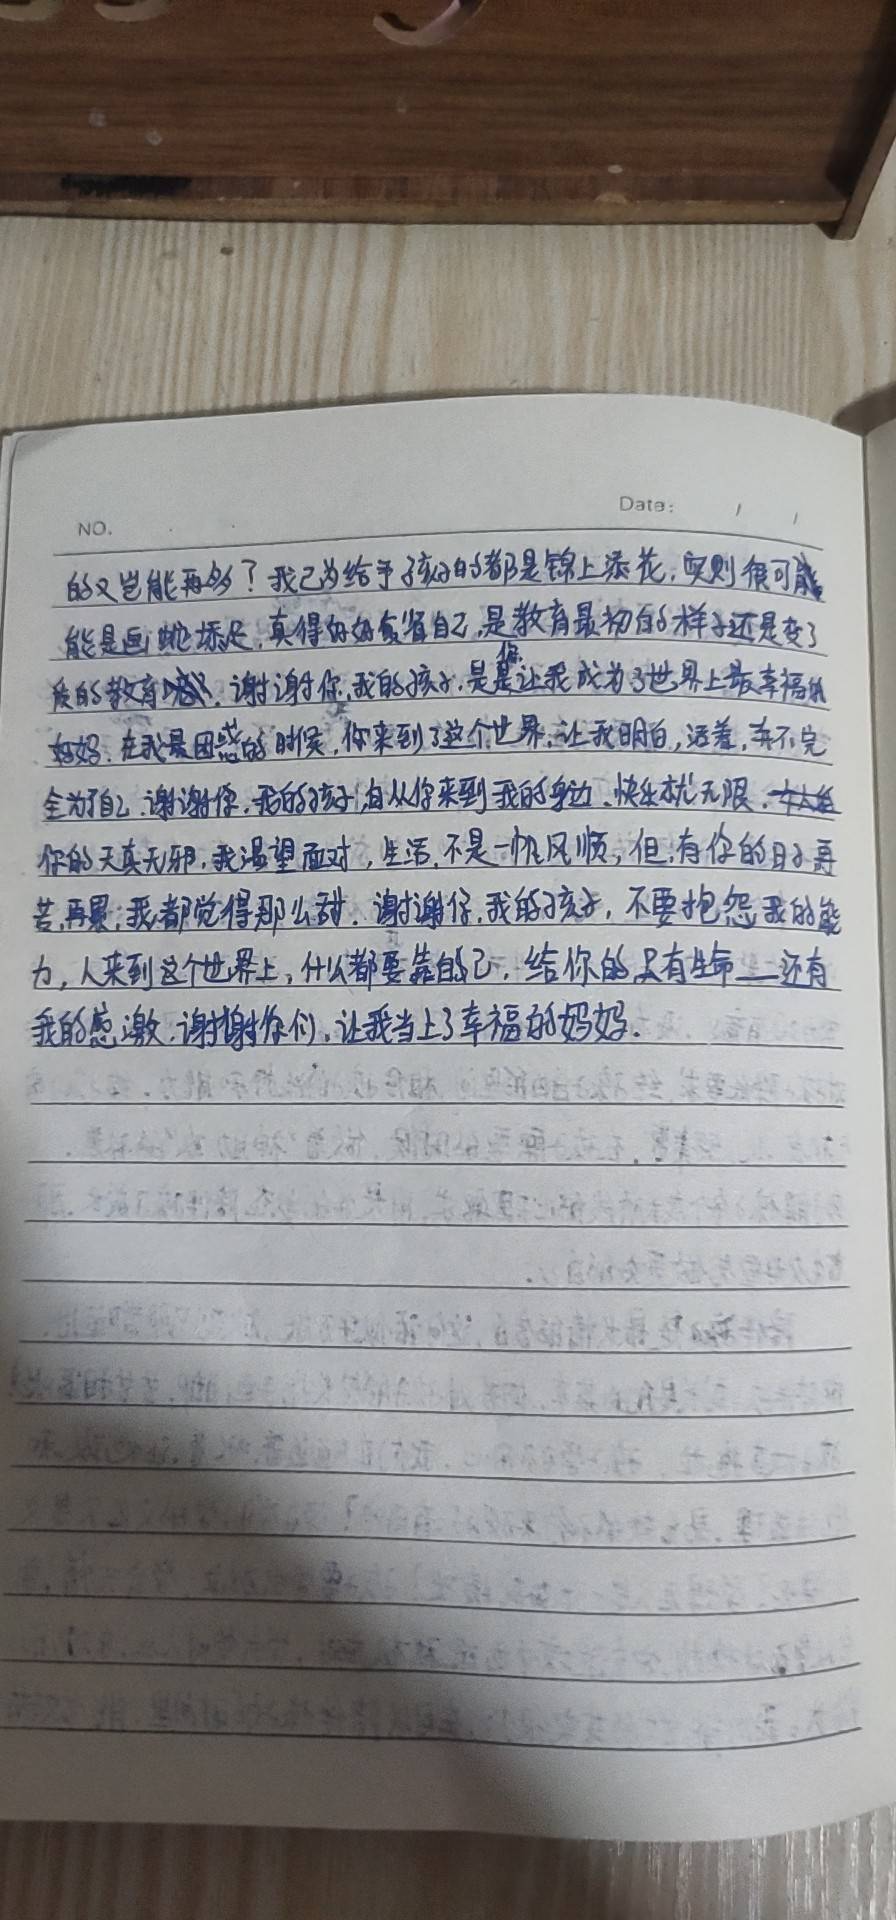 NO.
Date: / /
的又岂能再多？我己为给予孩子的都是锦上添花，实则很可能
能是画蛇添足，真得好好反省自己，是教育最初的样子还是变了
质的教育。谢谢你，我的孩子，是你让我成为了世界上最幸福的
妈妈，在我最困惑的时候，你来到了这个世界，让我明白，活着，并不完
全为了自己，谢谢你，我的孩子，自从你来到我的身边，快乐就无限，
你的天真无邪，我渴望面对，生活，不是一帆风顺，但，有你的日子再
苦，再累，我都觉得那么甜，谢谢你，我的孩子，不要抱怨我的能
力，人来到这个世界上，什么都要靠自己，给你的只有生命——还有
我的感激，谢谢你们，让我当上了幸福的妈妈．